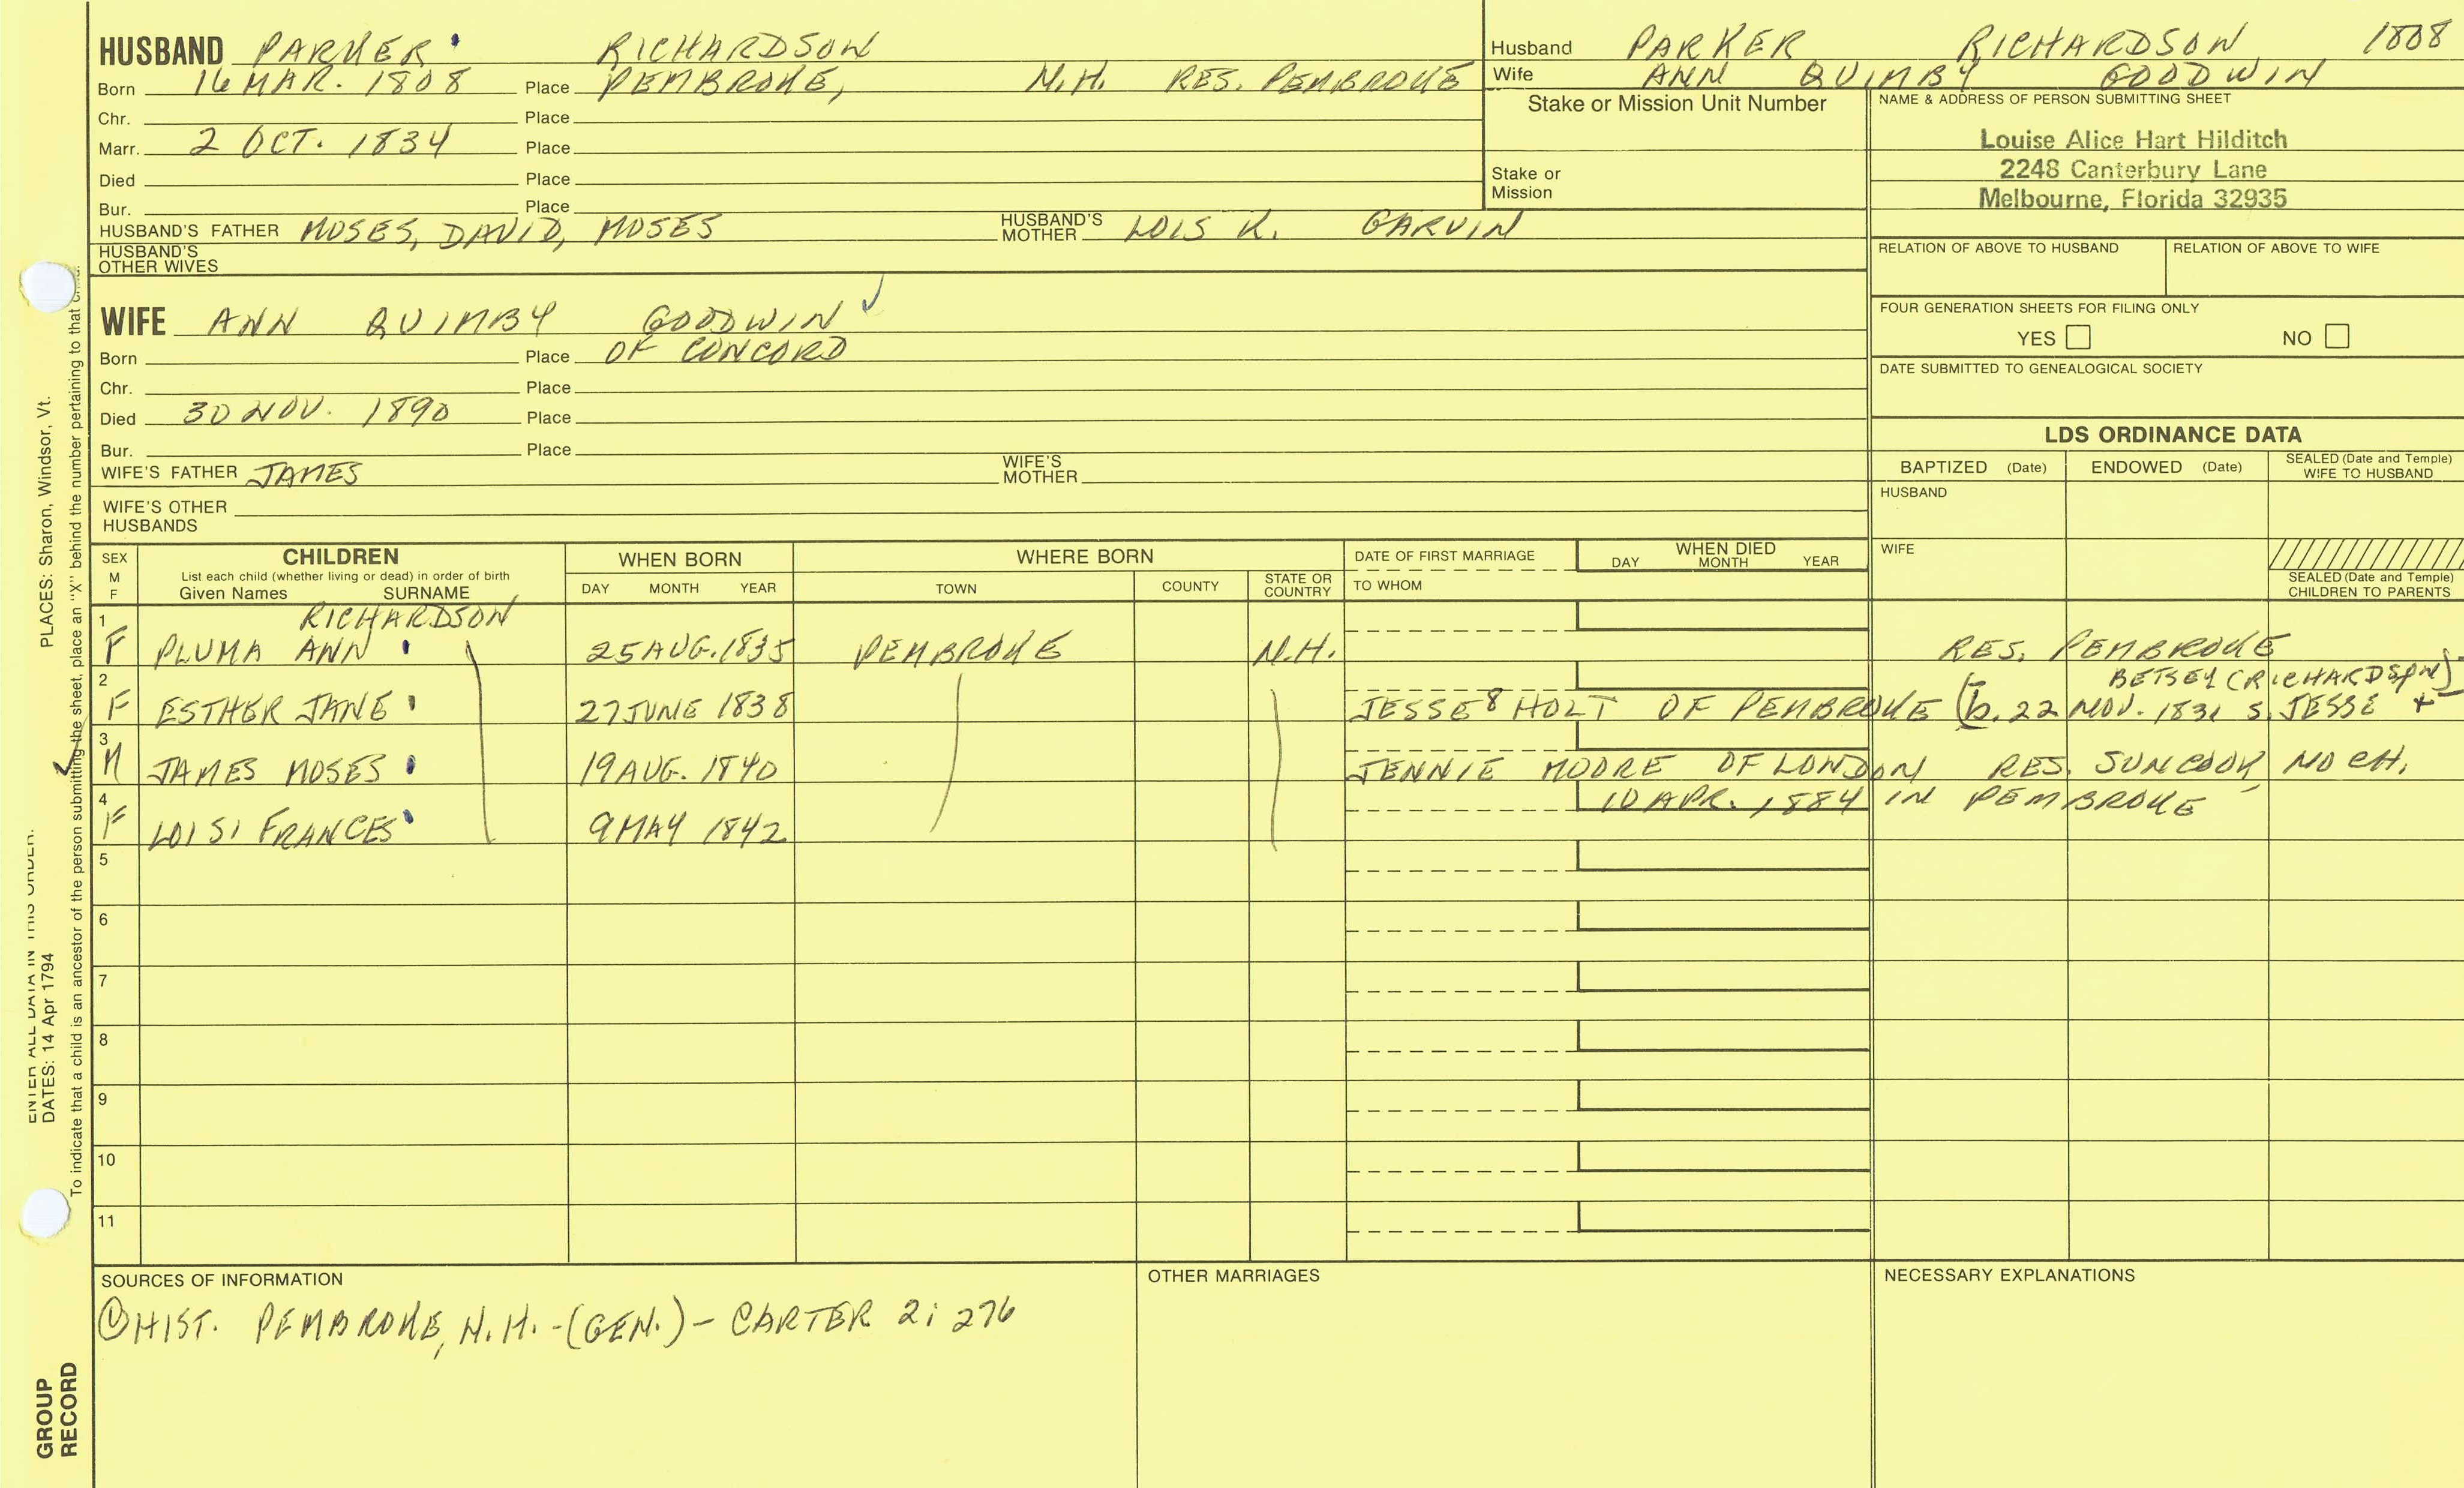 HUSBAND PARKER RICHARDSON
Born 16 MAR. 1808 Place PEMBROKE, N.H. RES. PEMBROKE
Chr. Place
Marr. 2 OCT. 1834 Place
Died Place
Bur. Place
HUSBAND'S FATHER MOSES, DAVID, MOSES HUSBAND'S MOTHER LOIS K. GARVIN
HUSBAND'S OTHER WIVES
WIFE ANN QUIMBY GOODWIN ✓
Born Place OF CONCORD
Chr. Place
Died 30 NOV. 1890 Place
Bur. Place
WIFE'S FATHER JAMES WIFE'S MOTHER
WIFE'S OTHER HUSBANDS
Husband PARKER RICHARDSON 1808
Wife ANN QUIMBY GOODWIN
Stake or Mission Unit Number
Stake or Mission
NAME & ADDRESS OF PERSON SUBMITTING SHEET
Louise Alice Hart Hilditch
2248 Canterbury Lane
Melbourne, Florida 32935
RELATION OF ABOVE TO HUSBAND RELATION OF ABOVE TO WIFE
FOUR GENERATION SHEETS FOR FILING ONLY
YES NO
DATE SUBMITTED TO GENEALOGICAL SOCIETY
LDS ORDINANCE DATA
BAPTIZED (Date) ENDOWED (Date) SEALED (Date and Temple) WIFE TO HUSBAND
HUSBAND
WIFE
SEALED (Date and Temple) CHILDREN TO PARENTS
SEX M F CHILDREN WHEN BORN WHERE BORN DATE OF FIRST MARRIAGE WHEN DIED
List each child (whether living or dead) in order of birth
Given Names SURNAME DAY MONTH YEAR TOWN COUNTY STATE OR COUNTRY TO WHOM DAY MONTH YEAR
RICHARDSON
1 F PLUMA ANN 25 AUG. 1835 PEMBROKE N.H. RES. PEMBROKE
BETSEY (RICHARDSON)
2 F ESTHER JANE 27 JUNE 1838 JESSE 8 HOLT OF PEMBROKE (b. 22 NOV. 1831 S. JESSE +
3 M JAMES MOSES 19 AUG. 1840 JENNIE MOORE OF LONDON RES. SUNCOOK NO CH.
10 APR. 1884 IN PEMBROKE
4 F LOISI FRANCES 9 MAY 1842
5
6
7
8
9
10
11
SOURCES OF INFORMATION
① HIST. PEMBROKE, N.H. - (GEN.) - CARTER 2; 276
OTHER MARRIAGES
NECESSARY EXPLANATIONS
ENTER ALL DATA IN THIS ORDER:
DATES: 14 Apr 1794 PLACES: Sharon, Windsor, Vt.
To indicate that a child is an ancestor of the person submitting the sheet, place an "X" behind the number pertaining to that child.
GROUP RECORD